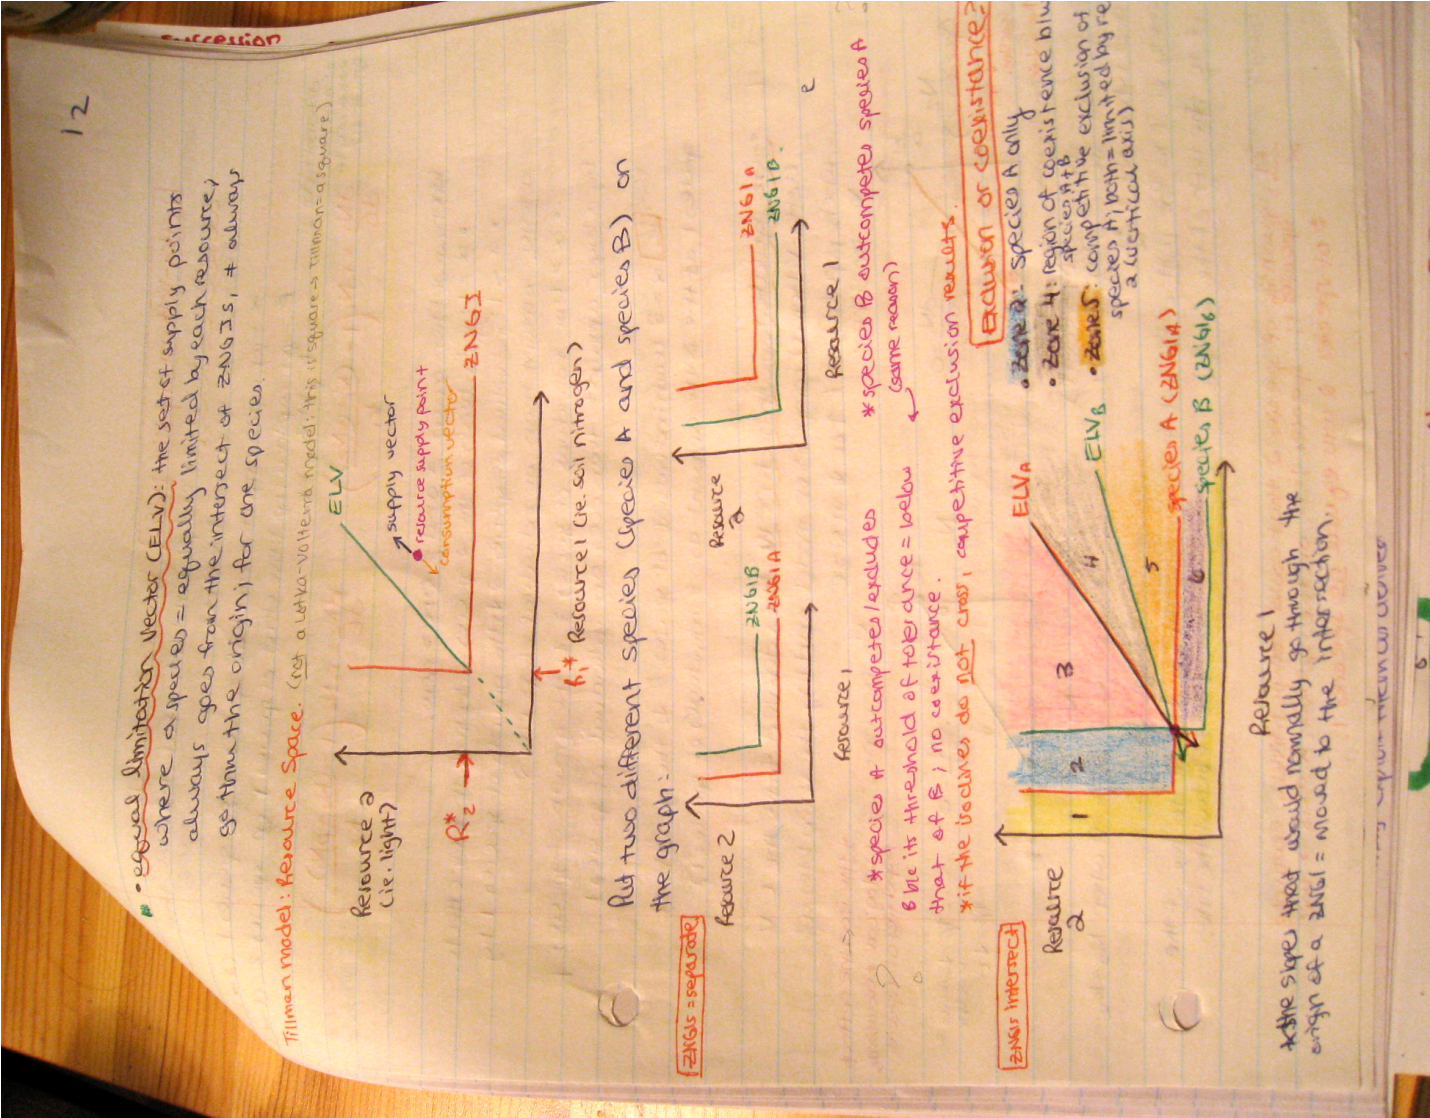 succession
12
• equal limitation vector (ELV): the set of supply points
where a species = equally limited by each resource;
always goes from the intersect of ZNGIs, + always
go thru the origin; for one species.
Tillman model: Resource Space. (not a Lotka-Volterra model: this is square → Tillman = a square)
Resource 2
(ie. light)
ELV
supply vector
resource supply point
consumption vector
ZNGI
R*2
R1*
Resource 1 (ie. soil nitrogen)
Put two different species (species A and species B) on
the graph:
ZNGIs = separate
Resource 2
ZNGIB
ZNGIA
Resource 1
Resource
2
ZNGIA
ZNGIB
Resource 1
e
*species A outcompetes/excludes
B b/c its threshold of tolerance = below
that of B; no coexistance.
*species B outcompetes species A
(same reason)
*if the isoclines do not cross, competitive exclusion results.
ZNGIs intersect
Exclusion or coexistance?
Resource
2
ELVA
ELVB
1
2
3
4
5
6
species A (ZNGIA)
species B (ZNGIB)
Resource 1
• Zone 2: species A only
• Zone 4: region of coexistence b/w
species A+B
• Zone 5: competitive exclusion of
species A; both = limited by re
2 (vertical axis)
*the slopes that would normally go through the
origin of a ZNGI = moved to the intersection.